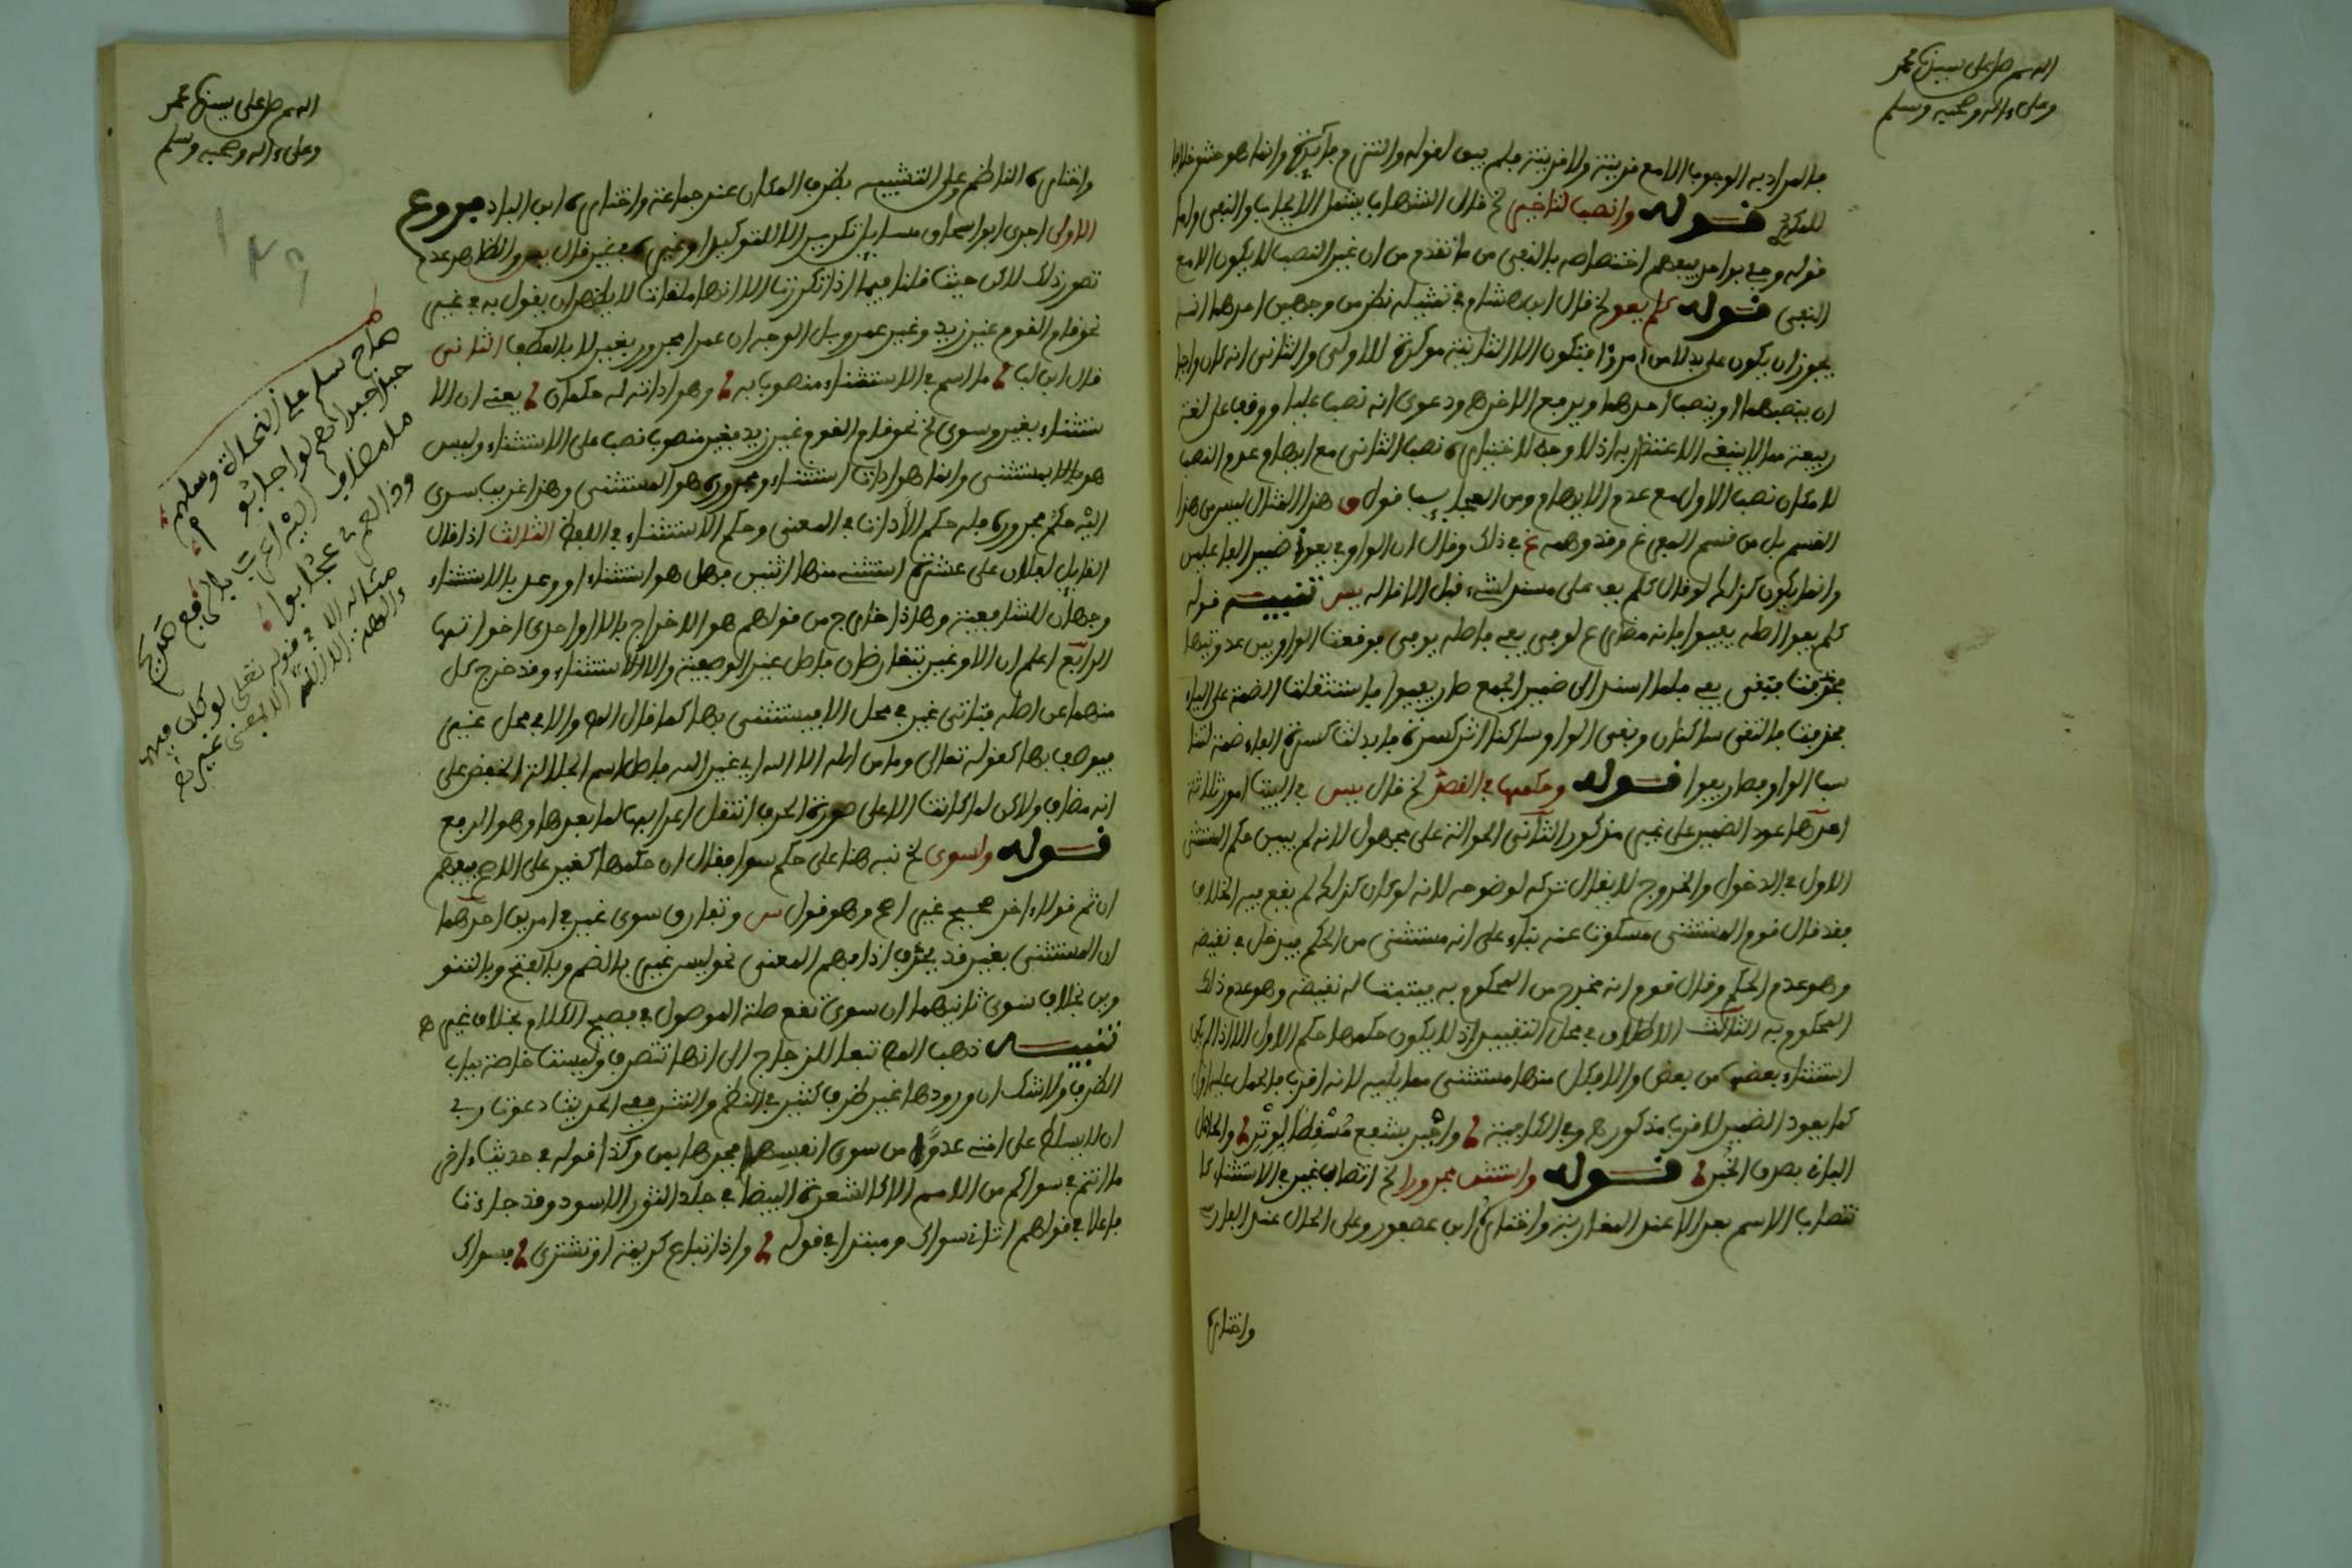 اللهم صل على سيدنا محمد
وعلى ءاله وصحبه وسلم
فالمراد به الوجوب الا مع قرينة ولا قرينة فلم يبق لقوله والتزم فائدة وانما هو حشو خلافا
للمكودي قوله وانصب لتاخير الخ قال الشهاب يشمل الايجاب والنفي واما
قوله وجئ بواحد فيفهم اختصاصه بالنفي من ما تقدم من ان غير النصب لا يكون الا مع
النفي قوله كلم يفوا الخ قال ابن هشام في تمثيله نظر من وجهين احدهما انه
يجوز ان يكون على بدلا من امرؤ فتكون الا الثانية موكدة للاولى والثاني انه كان واجبا
ان ينصبهما او ينصب احدهما ويرفع الاخر ودعوى انه نصب عليا ووقف على لغة
ربيعة مما لا ينبغي الاعتذار به اذ لا وجه لاختياره نصب الثاني مع ايهام عدم النصب
لامكان نصب الاول مع عدم الايهام ومن العجايب قول هذا المثال ليس من هذا
القسم بل من قسم المفرغ وقد وهم في ذلك وقال ان الواو في يفوا ضمير الفاعلين
وانما يكون كذلك لو قال كلم يف على مسند لشيء قبل الا قاله يس تنبيه قوله
كلم يفوا اصله يفيوا فانه مضارع لوفى يفي فاصله يوفي فوقعت الواو بين عدوتيها
فحذفت فبقي يفي فلما اسند الى ضمير الجمع صار يفيوا فاستثقلت الضمة على الياء
فحذفت فالتقى ساكنان وبقي الواو ساكنة اثر كسرة فابدلت كسرة الفاء ضمة لتنا
سب الواو فصار يفوا قوله وحكمها في القصد الخ قال يس في البيت امور ثلاثة
احدها عود الضمير على غير مذكور الثاني الحوالة على مجهول لانه لم يبين حكم المستثنى
الاول في الدخول والخروج لا يقال تركه لوضوحه لانه لو كان كذلك لم يقع فيه الخلاف
فقد قال قوم المستثنى مسكوت عنه بناء على انه مستثنى من الحكم فيدخل في نقيضه
وهو عدم الحكم وقال قوم انه مخرج من المحكوم به فيثبت له نقيضه وهو عدم ذلك
المحكوم به الثالث الاطلاق في محل التقييد اذ لا يكون حكمها حكم الاول الا اذا لم يكن
استثناء بعضها من بعض والا فكل منها مستثنى مما يليه لانه اقرب فالحمل عليه اولى
كما يعود الضمير لاقرب مذكور وفي الكافية واجبر بشفع مسقطا لوتر والحاصل
الباقي بصرف الخبر قوله واستثن مجرورا الخ انتصاب غير في الاستثناء كا
نتصاب الاسم بعد الا عند المغاربة واختاره ابن عصفور وعلى الحال عند الفارسي
واختاره
اللهم صل على سيدنا محمد
وعلى ءاله وصحبه وسلم
واختاره الناظم وعلى التشبيه بظرف المكان عند جماعة واختاره ابن الباذ فروع
الاولى اجرى ابو اسحاق مسايل تكرير الا للتوكيد او غيره في غير قال يس والظاهر عدم
تصور ذلك لاكن حيث قلنا فيما اذا تكررت الا انها ملغاة لا يظهر ان يقول به في غير
نحو قام القوم غير زيد وغير عمرو بل الوجه ان عمرا مجرور بغير لا بالعطف الثاني
قال ابن لب ما اسم في الاستثناء منصوب به وهو اداته له حكمان يعني ان الا
ستثناء بغير وسوى الخ نحو قام القوم غير زيد فغير منصوب نصب على الاستثناء وليس
هو بالمستثنى وانما هو اداة استثناء ومجروره هو المستثنى وهذا غريب سوى
اليه حكم مجروره فله حكم الاداة في المعنى وحكم الاستثناء في اللفظ الثالث اذا قال
القايل لفلان على عشرة استثنى منها اثنين فهل هو استثناء او وعد بالاستثناء
وجهان للشافعية وهذا خارج من قولهم هو الاخراج بالا او احدى اخواتها
الرابع اعلم ان الا وغير يتقارضان فاصل غير الوصفية والا الاستثناء وقد خرج كل
منهما عن اصله فتاتي غير في محل الا فيستثنى بها كما قال المص والا في محل غير
فيوصف بها كقوله تعالى وما من اله الا الله اي غير الله فاصل اسم الجلالة الخفض على
انه مضاف ولاكن لما كانت الا على صورة الحرف انتقل اعرابها لما بعدها وهو الرفع
قوله ولسوى الخ نبه هنا على حكم سوا فقال ان حكمها كغير على الاصح فيفهم
ان ثم قولا ءاخر صحيح غير اصح وهو قول س وتفارق سوى غير في امرين احدهما
ان المستثنى بغير قد يحذف اذا فهم المعنى نحو ليس غير بالضم وبالفتح وبالتنو
وين بخلاف سوى ثانيهما ان سوى تقع صلة الموصول في فصيح الكلام بخلاف غير ه
تنبيه ذهب المص تبعا للزجاج الى انها تتصرف وليست خاصة بباب
الظرف ولا شك ان ورودها غير ظرف كثير في النظم والنثر ففي الحديث دعوت ربي
ان لا يسلط على امتي عدوا من سوى انفسها فجرها بمن وكذا قوله في حديث ءاخر
ما انتم في سواكم من الامم الا كالشعرة البيضاء في جلد الثور الاسود وقد جاءت
فاعلا في قولهم اتاني سواك ومبتدا في قوله واذا تباع كريمة او تشترى فسواك
هاج سلم على النحاة وسلهم
حبذا حبذا هم لو اجابوا
ما مضاف اليه اعرب بالرفع
وذا لعمري عجاب
مثاله الا في قوله تعلى لو كان فيهما
ءالهة الا الله الا بمعنى غير